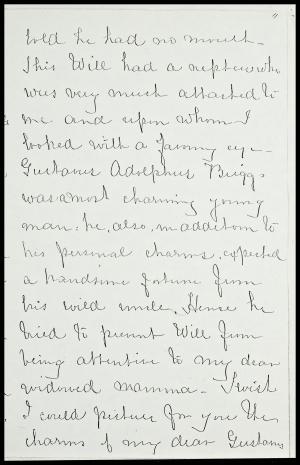 told he had no mouth -
This Will had a nephew who
was very much attached to
me and upon whom I
looked with a favoring eye -
Gustavus Adolphus Briggs
was a most charming young
man: he, also, in addition to
his personal charms, expected
a handsome fortune from
his wild uncle. Hence he
tried to prevent Will from
being attentive to my dear
widowed mamma - I wish
I could picture for you the
charms of my dear Gustavus